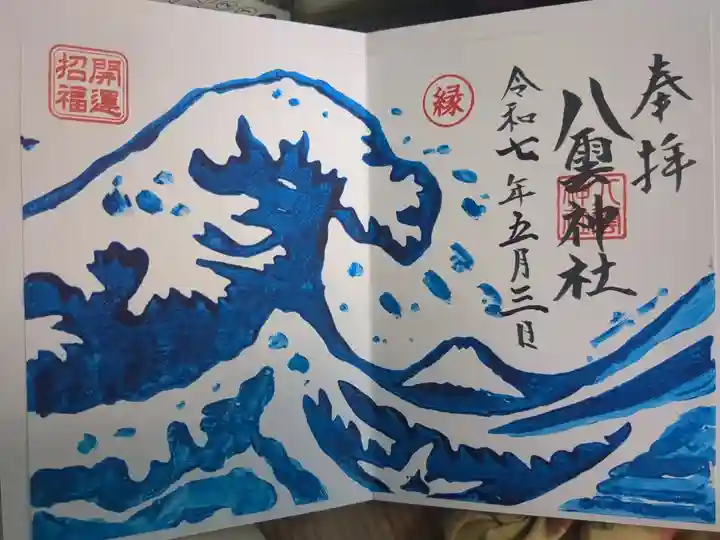 奉拝
八雲神社
令和七年五月三日
縁
開運
招福